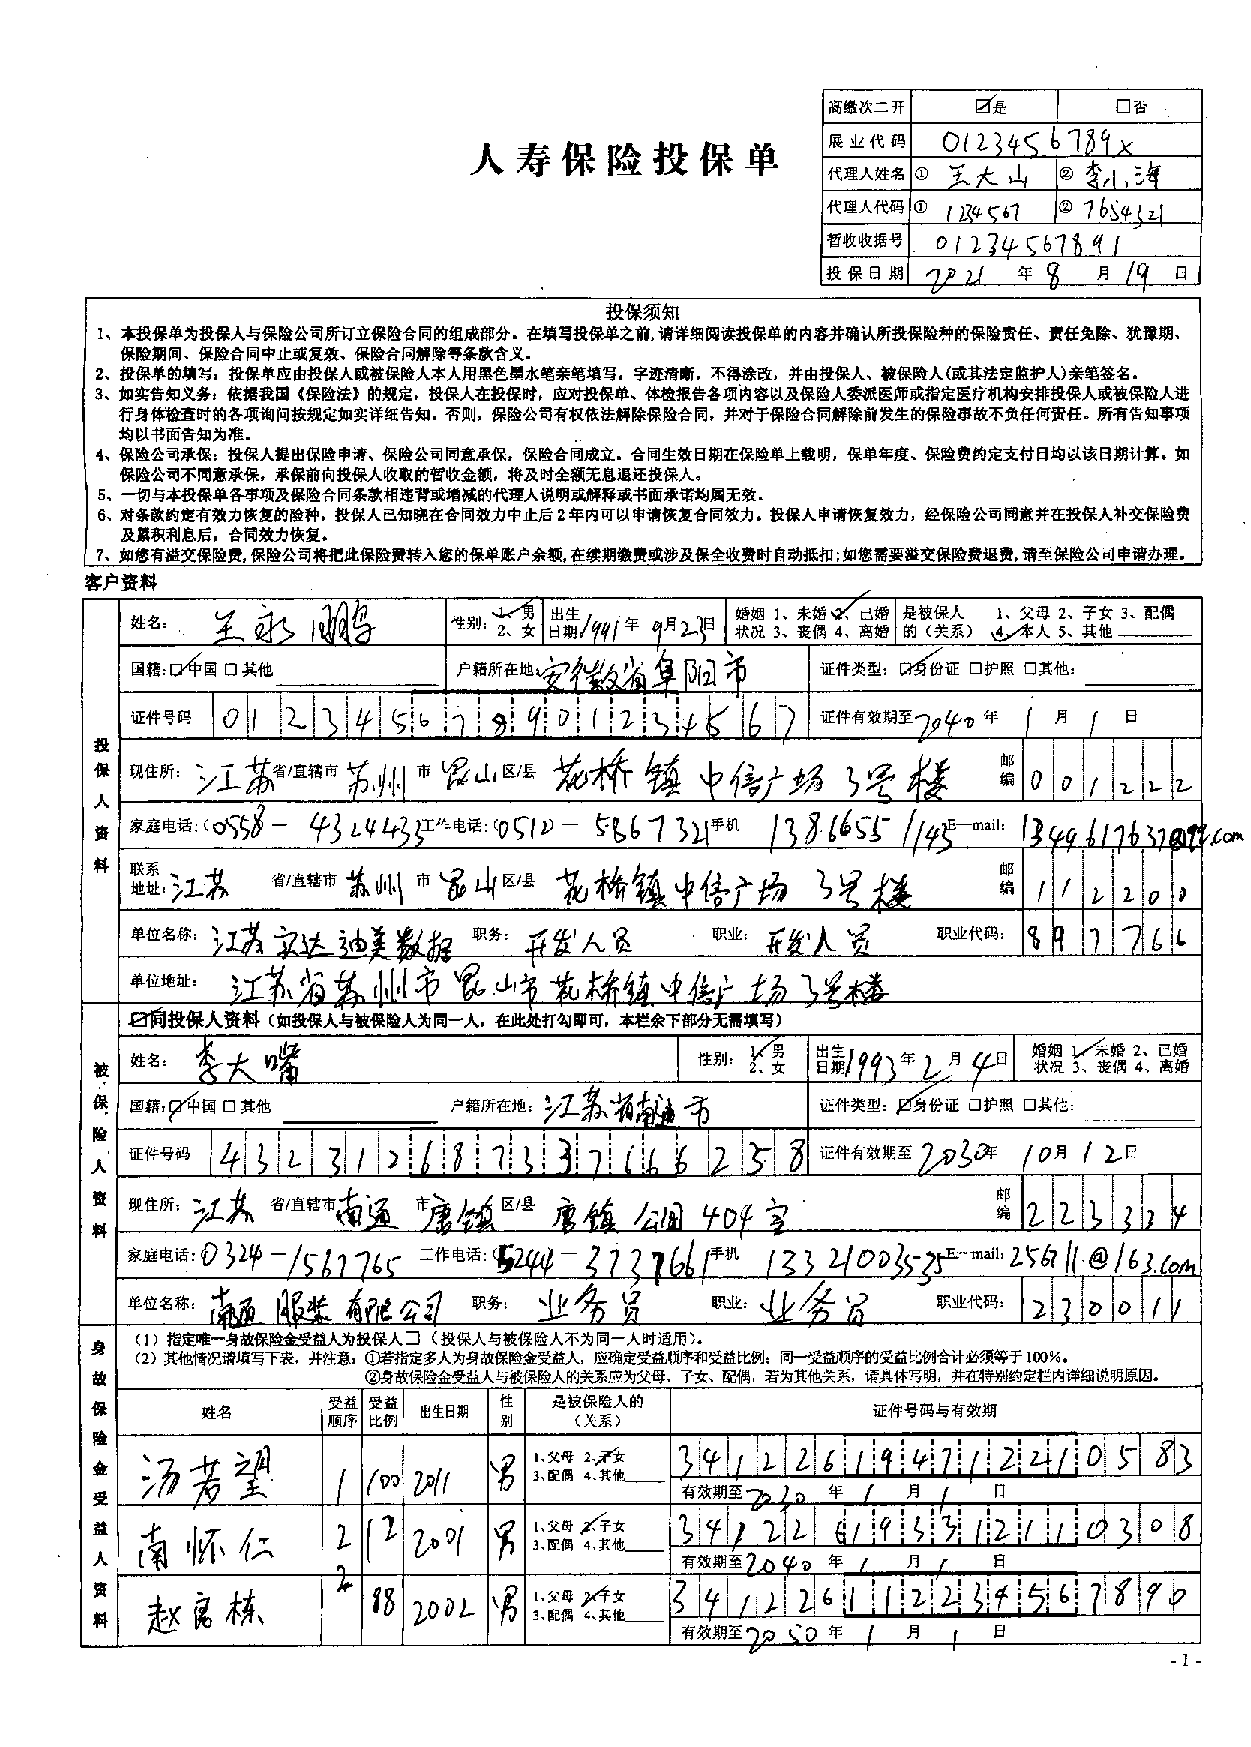 高缴次二开 ☑是 □否
人寿保险投保单
展业代码 0123456789x
代理人姓名 ① 王大山 ② 李小海
代理人代码 ① 1234567 ② 7654321
暂收收据号 01234567891
投保日期 2021 年 8 月 19 日
投保须知
1、本投保单为投保人与保险公司所订立保险合同的组成部分。在填写投保单之前,请详细阅读投保单的内容并确认所投保险种的保险责任、责任免除、犹豫期、
保险期间、保险合同中止或复效、保险合同解除等条款含义。
2、投保单的填写:投保单应由投保人或被保险人本人用黑色墨水笔亲笔填写,字迹清晰,不得涂改,并由投保人、被保险人(或其法定监护人)亲笔签名。
3、如实告知义务:依据我国《保险法》的规定,投保人在投保时,应对投保单、体检报告各项内容以及保险人委派医师或指定医疗机构安排投保人或被保险人进
行身体检查时的各项询问按规定如实详细告知。否则,保险公司有权依法解除保险合同,并对于保险合同解除前发生的保险事故不负任何责任。所有告知事项
均以书面告知为准。
4、保险公司承保:投保人提出保险申请、保险公司同意承保,保险合同成立。合同生效日期在保险单上载明,保单年度、保险费约定支付日均以该日期计算。如
保险公司不同意承保,承保前向投保人收取的暂收金额,将及时全额无息退还投保人。
5、一切与本投保单各事项及保险合同条款相违背或增减的代理人说明或解释或书面承诺均属无效。
6、对条款约定有效力恢复的险种,投保人已知晓在合同效力中止后2年内可以申请恢复合同效力。投保人申请恢复效力,经保险公司同意并在投保人补交保险费
及累积利息后,合同效力恢复。
7、如您有溢交保险费,保险公司将把此保险费转入您的保单账户余额,在续期缴费或涉及保全收费时自动抵扣;如您需要溢交保险费退费,请至保险公司申请办理。
客户资料
投保人资料
姓名: 王永鹏 性别: 1、男 2、女 出生日期 1991 年 9 月 23 日 婚姻状况 1、未婚 2、已婚 3、丧偶 4、离婚 是被保人的(关系) 1、父母 2、子女 3、配偶 4、本人 5、其他
国籍: ☑中国 □其他 户籍所在地: 安徽省阜阳市 证件类型: ☑身份证 □护照 □其他:
证件号码 012345678901234567 证件有效期至 2040 年 1 月 1 日
现住所: 江苏 省/直辖市 苏州 市 昆山 区/县 花桥镇中信广场3号楼 邮编 001222
家庭电话:(0558-4324433 工作电话:(0512-5867321 手机 13866551143 E-mail: 1349617637@qq.com
联系地址: 江苏 省/直辖市 苏州 市 昆山 区/县 花桥镇中信广场3号楼 邮编 112200
单位名称: 江苏实达迪美数据 职务: 开发人员 职业: 开发人员 职业代码: 897766
单位地址: 江苏省苏州市昆山市花桥镇中信广场3号楼
被保险人资料
☑同投保人资料(如投保人与被保险人为同一人,在此处打勾即可,本栏余下部分无需填写)
姓名: 李大嘴 性别: 1、男 2、女 出生日期 1993 年 2 月 4 日 婚姻状况 1、未婚 2、已婚 3、丧偶 4、离婚
国籍: ☑中国 □其他 户籍所在地: 江苏省南通市 证件类型: ☑身份证 □护照 □其他:
证件号码 432312687337666258 证件有效期至 2030 年 10 月 12 日
现住所: 江苏 省/直辖市 南通 市 唐镇 区/县 唐镇公园404室 邮编 223324
家庭电话:0324-1567765 工作电话:(5244-3737661 手机 13321003535 E-mail: 256711@163.com
单位名称: 南通服装有限公司 职务: 业务员 职业: 业务员 职业代码: 230011
身故保险金受益人资料
(1)指定唯一身故保险金受益人为投保人□(投保人与被保险人不为同一人时适用)。
(2)其他情况请填写下表,并注意:①若指定多人为身故保险金受益人,应确定受益顺序和受益比例;同一受益顺序的受益比例合计必须等于100%。
②身故保险金受益人与被保险人的关系应为父母、子女、配偶,若为其他关系,请具体写明,并在特别约定栏内详细说明原因。
姓名 受益顺序 受益比例 出生日期 性别 是被保险人的(关系) 证件号码与有效期
汤若望 1 100 2011 男 1、父母 2、子女 3、配偶 4、其他 341226194712210583
有效期至 2030 年 1 月 1 日
南怀仁 2 12 2001 男 1、父母 2、子女 3、配偶 4、其他 341226193312110308
有效期至 2040 年 1 月 1 日
赵高栋 2 88 2002 男 1、父母 2、子女 3、配偶 4、其他 341226112234567890
有效期至 2050 年 1 月 1 日
- 1 -